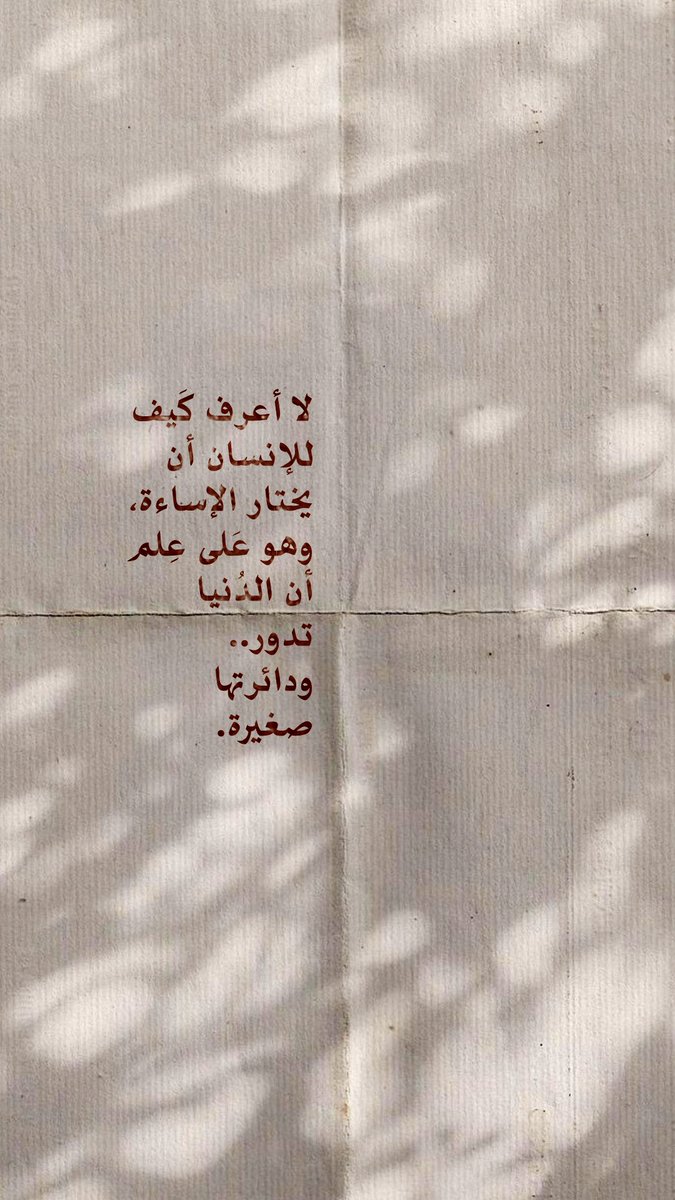 لا أعرف كَيف
للإنسان أن
يختار الإساءة،
وهو عَلى عِلم
أن الدُنيا
تدور..
ودائرتها
صغيرة.